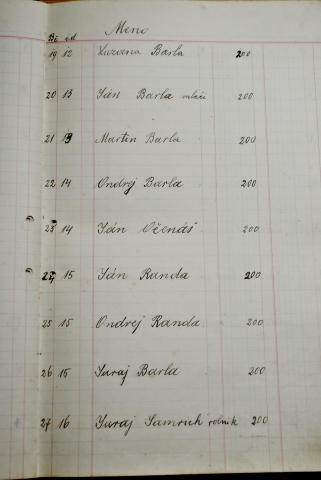 Meno
Bč čd
19 12 Zuzana Barla 200
20 13 Ján Barla mladší 200
21 13 Martin Barla 200
22 14 Ondrej Barla 200
23 14 Ján Očenáš 200
24 15 Ján Randa 200
25 15 Ondrej Randa 200
26 15 Juraj Barla 200
27 16 Juraj Samruh rolník 200